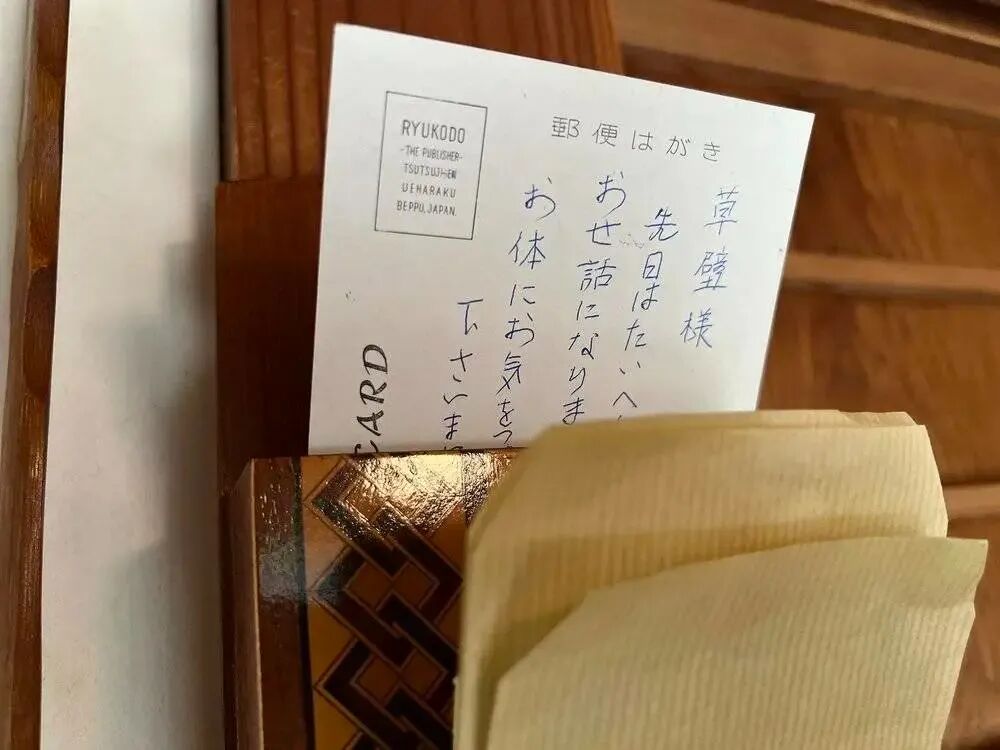 郵便はがき
RYUKODO
-THE PUBLISHER-
TSUTSUJI-EN
UEHARAKU
BEPPU, JAPAN.
草壁様
先日はたいへ
おせ話になりま
お体にお気をつ
下さいま
CARD